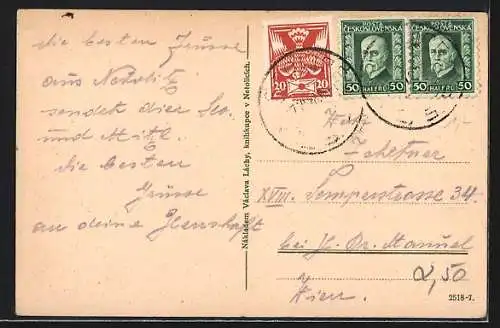 die besten Grüsse
aus Netolitz
sendet dier
und Mitzl.
die besten
Grüsse
an deine Herrschaft
Nákladem Václava Láchy, knihkupce v Netolicích.
20 20
POŠTA
ČESKOSLOVENSKÁ
50 HALÉŘŮ
POŠTA
ČESKOSLOVENSKÁ
HALÉŘŮ 50
XVIII. Semperstrasse 34.
bei H. Dr. Manuel
Wien.
2,50
2518-7.